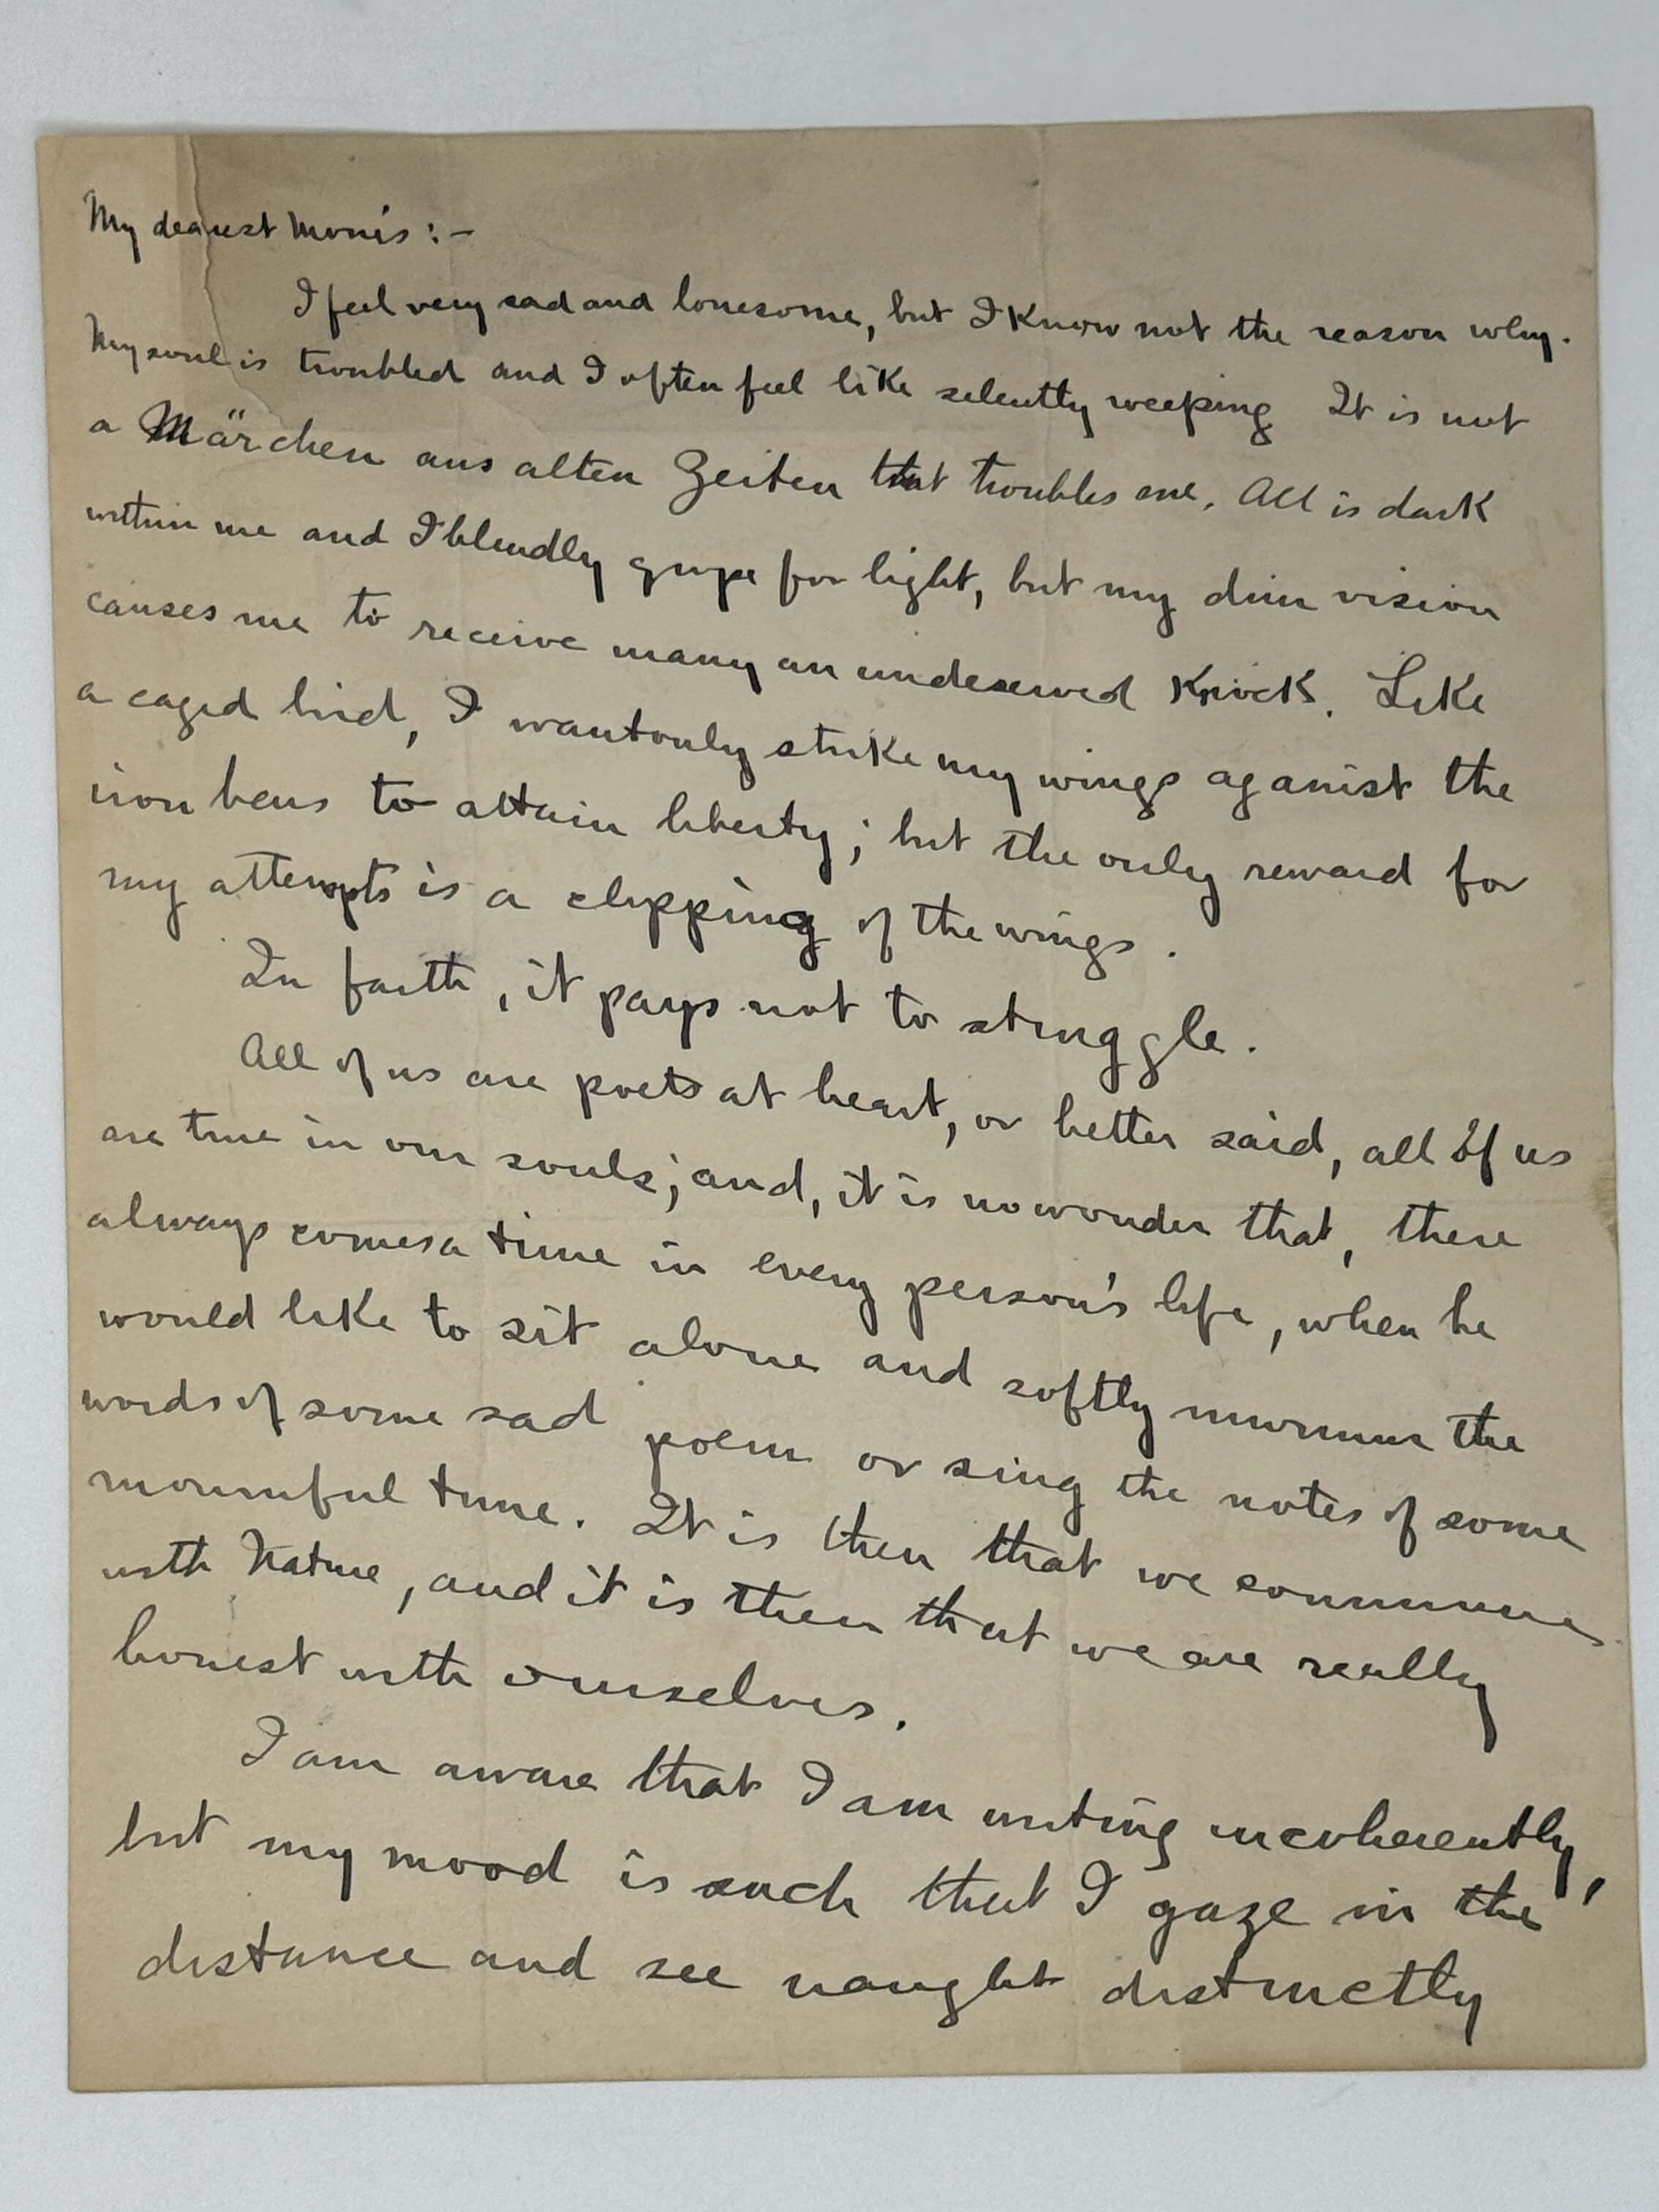 My dearest Morris :-
I feel very sad and lonesome, but I Know not the reason why.
My soul is troubled and I often feel like silently weeping It is not
a Märchen aus alten Zeiten that troubles me. All is dark
within me and I blindly grope for light, but my dim vision
causes me to receive many an undeserved Knock. Like
a caged bird, I wantonly strike my wings against the
iron bars to attain liberty; but the only reward for
my attempts is a clipping of the wings.
In faith, it pays not to struggle.
All of us are poets at heart, or better said, all of us
are true in our souls; and, it is no wonder that, there
always comes a time in every person's life, when he
would like to sit alone and softly murmur the
words of some sad poem or sing the notes of some
mournful tune. It is then that we commune
with Nature, and it is then that we are really
honest with ourselves.
I am aware that I am writing incoherently,
but my mood is such that I gaze in the
distance and see naught distinctly